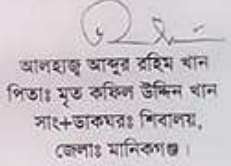 আলহাজ্ব আব্দুর রহিম খান
পিতাঃ মৃত কফিল উদ্দিন খান
সাং+ডাকঘরঃ শিবালয়,
জেলাঃ মানিকগঞ্জ।